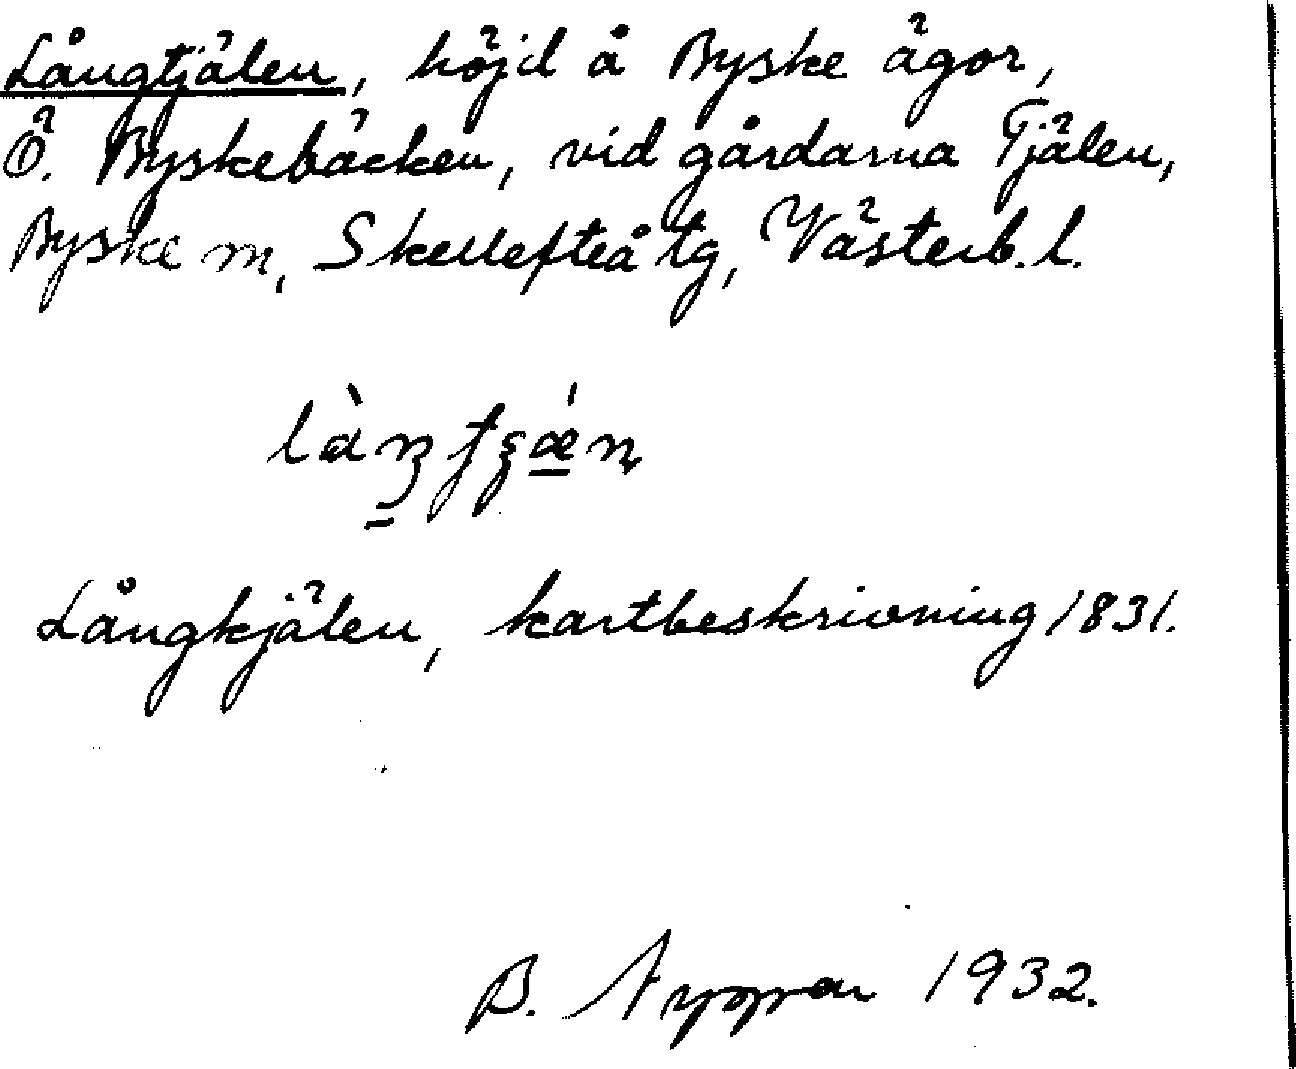 Långtjälen, höjd å Byske ägor,
Ö. Byskebäcken, vid gårdarna Tjälen,
Byske m, Skellefteå tg, Västerb. l.
Långkjälen, kartbeskrivning 1831.
B. 1932.